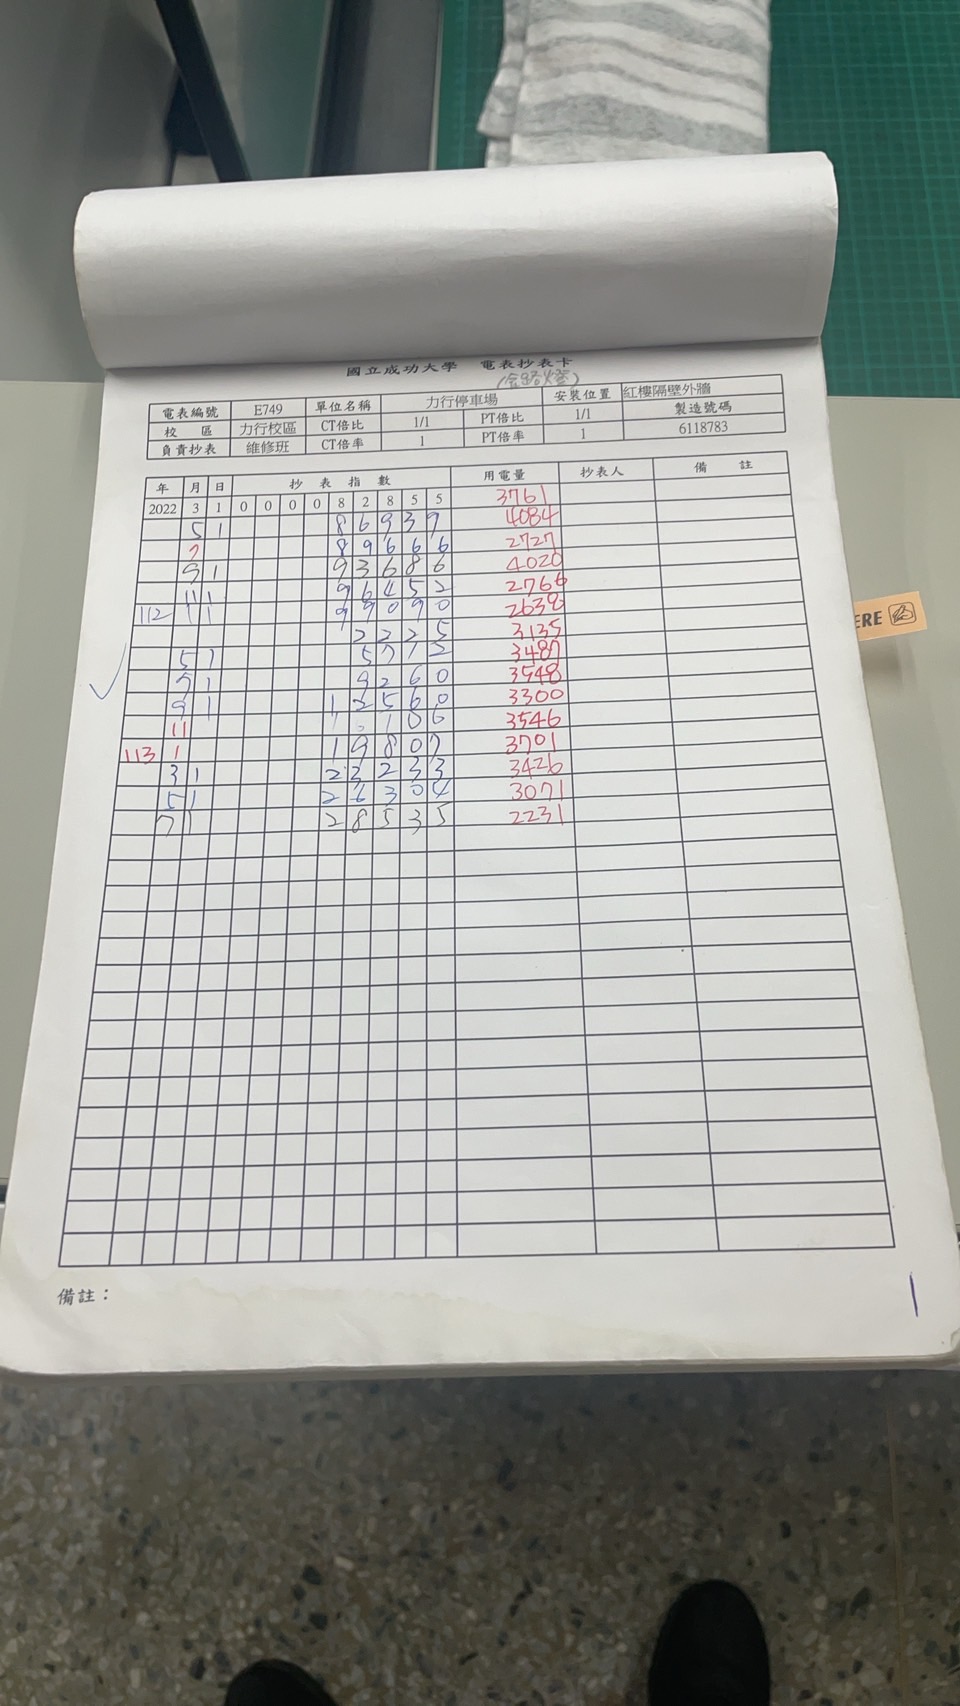 國立成功大學 電表抄表卡
電表編號 E749 單位名稱 力行停車場 安裝位置 紅樓隔壁外牆
校 區 力行校區 CT倍比 1/1 PT倍比 1/1 製造號碼
負責抄表 維修班 CT倍率 1 PT倍率 1 6118783
年 月 日 抄 表 指 數 用電量 抄表人 備 註
2022 3 1 0 0 0 0 8 2 8 5 5 3761
5 1 8 6 9 3 9 4084
7 8 9 6 6 6 2727
9 1 9 3 6 8 6 4020
11 1 9 6 4 5 2 2766
112 1 1 9 9 0 9 0 2638
2 2 2 5 3135
5 1 5 7 1 2 3487
7 1 9 2 6 0 3548
9 1 1 2 5 6 0 3300
11 1 6 1 0 6 3546
113 1 1 9 8 0 7 3701
3 1 2 3 2 3 3 3426
5 1 2 6 3 0 4 3071
7 1 2 8 5 3 5 2231
備註：
ERE